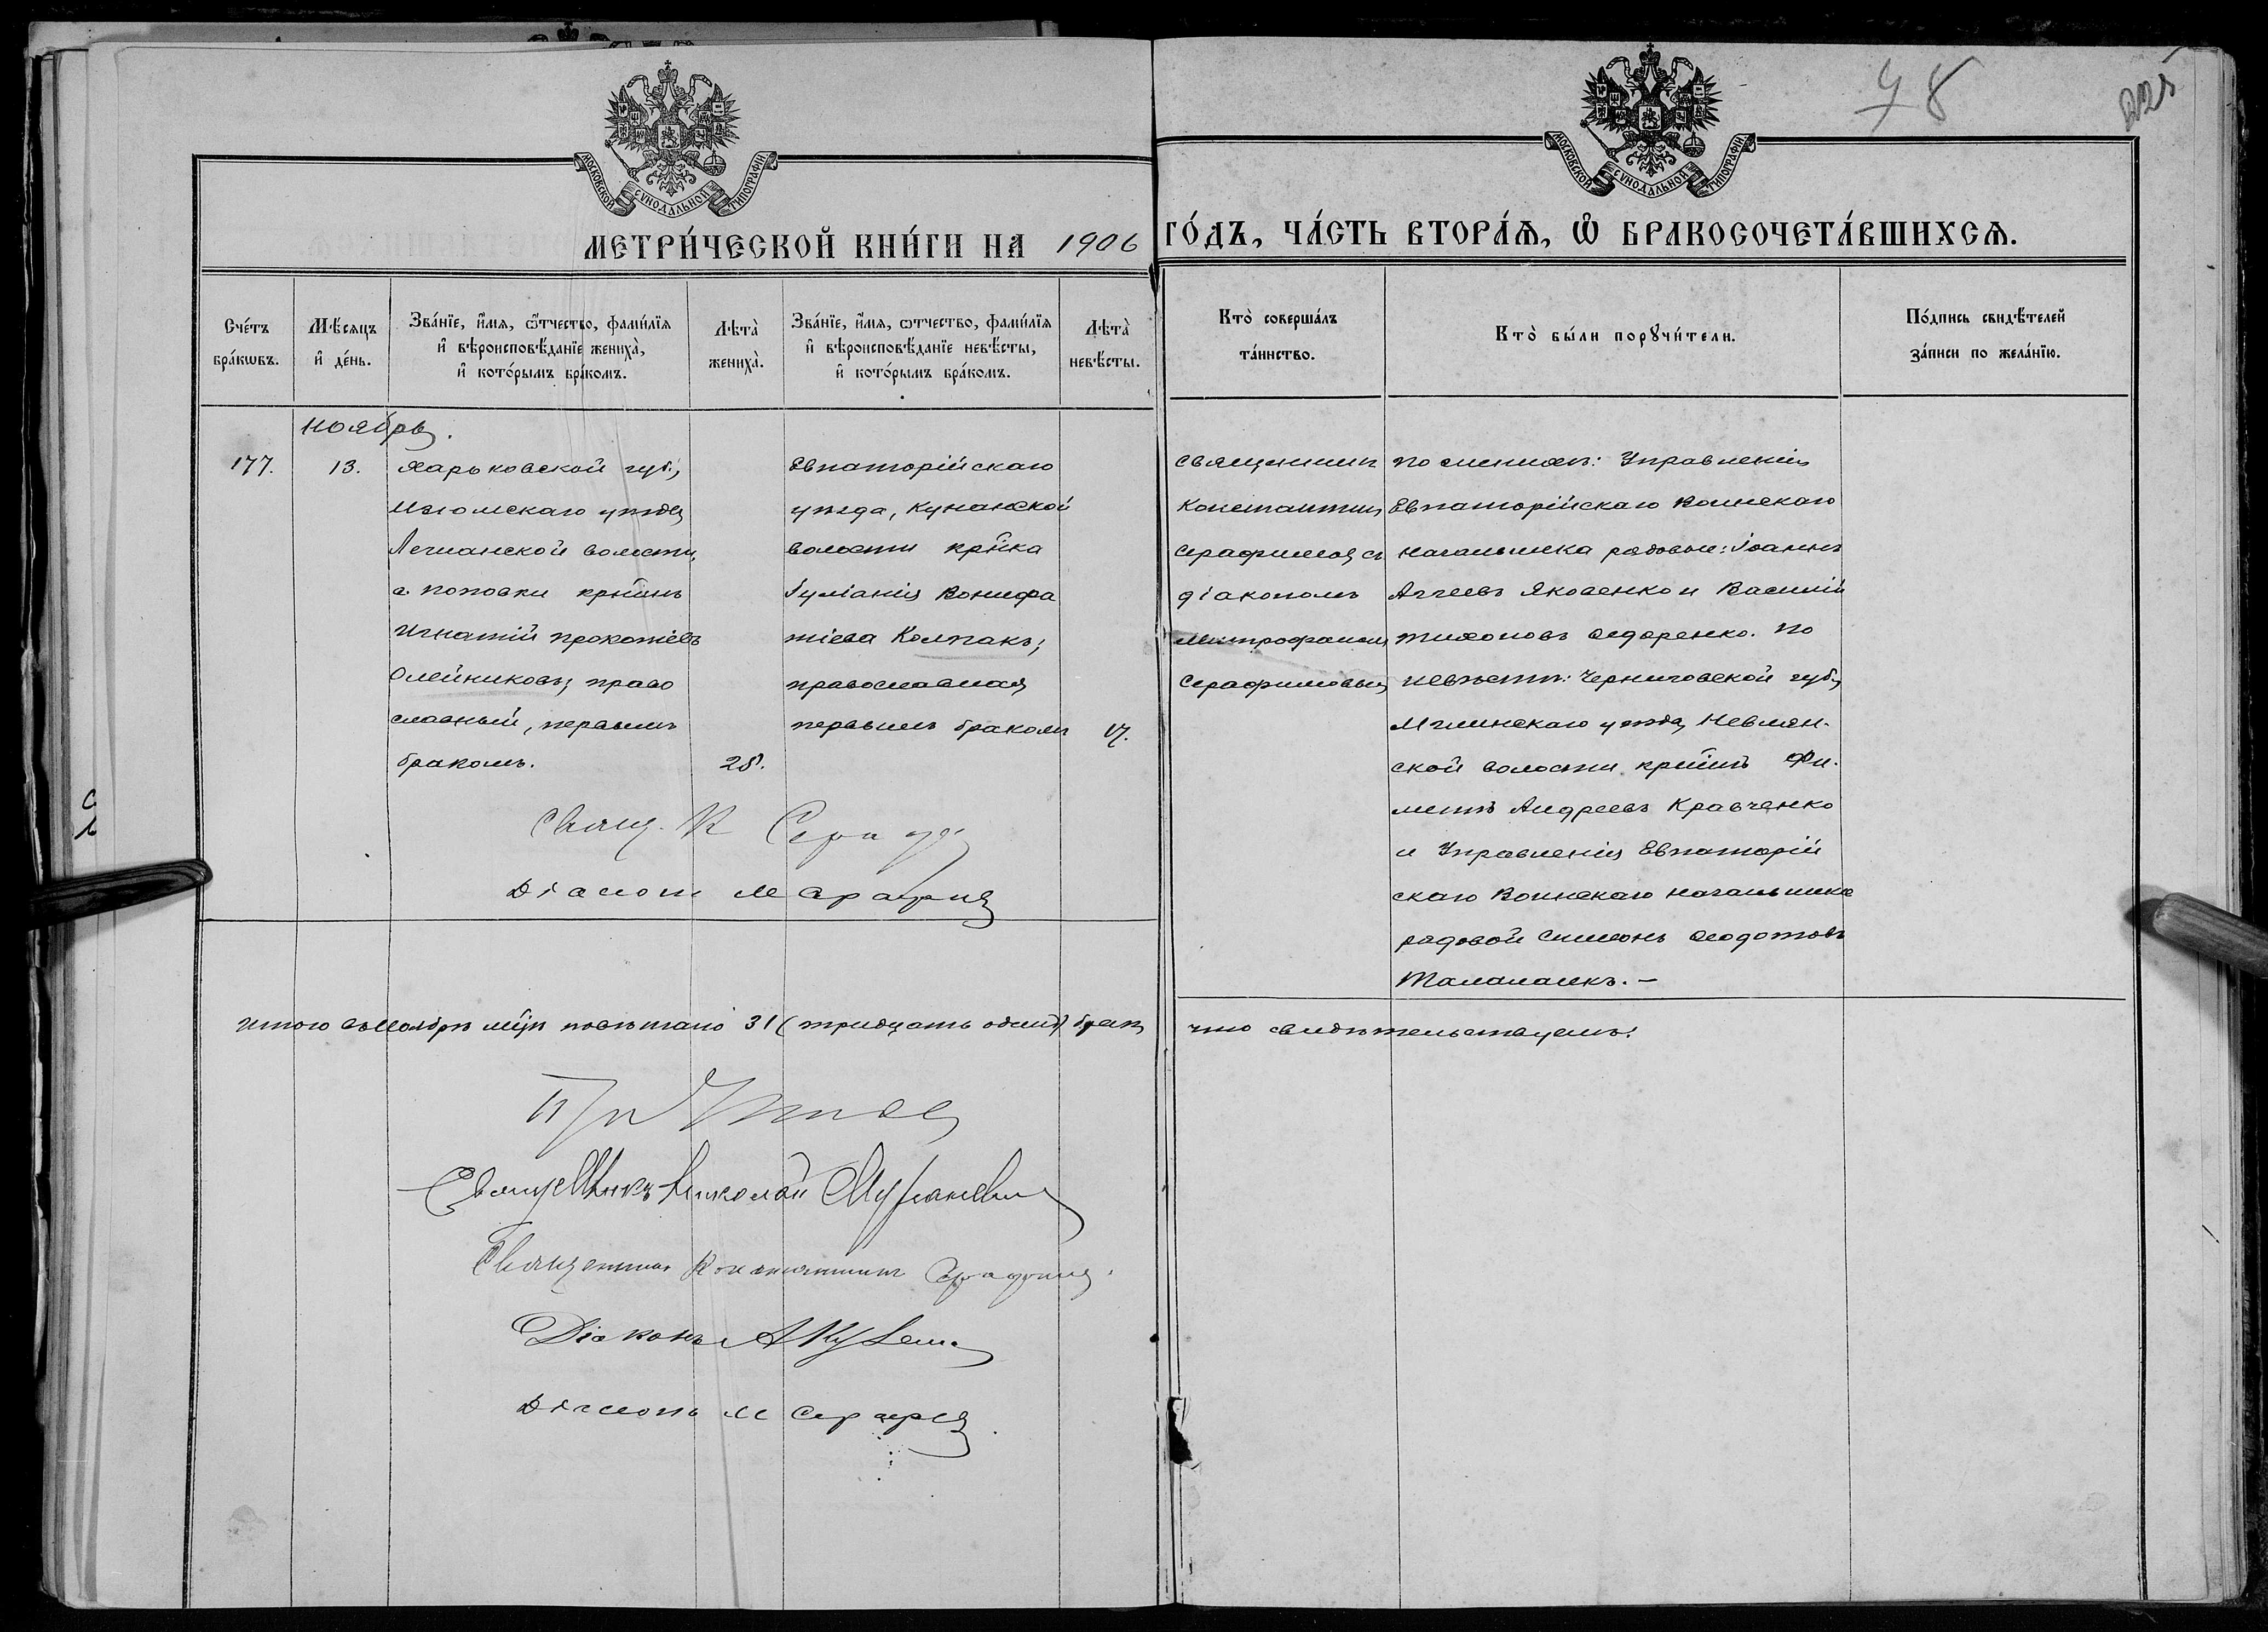 48
225
МОСКОВСКОЙ СѴНОДАЛЬНОЙ ТИПОГРАФІИ
МОСКОВСКОЙ СѴНОДАЛЬНОЙ ТИПОГРАФІИ
МЕТРИ́ЧЕСКОЙ КНИ́ГИ НА 1906 ГО́ДЪ, ЧА́СТЬ ВТОРА́Ѧ, Ѽ БРАКОСОЧЕТА́ВШИХСѦ.
Сче́тъ
бра́кѡвъ.
Мѣ́сяцъ
и҆ де́нь.
Зва́нїе, и҆́мя, ѻ҆́тчество, фами́лїя
и҆ вѣроисповѣ́данїе жениха̀,
и҆ кото́рымъ бра́комъ.
Лѣта̀
жениха̀.
Зва́нїе, и҆́мя, ѻтчество, фами́лїя
и҆ вѣроисповѣ́данїе невѣ́сты,
и҆ кото́рымъ бра́комъ.
Лѣта̀
невѣ́сты.
Кто̀ соверша́лъ
та́инство.
Кто̀ бы́ли порꙋчи́тели.
По́дпись свидѣ́телей
за́писи по жела́нїю.
Ноябрь.
177.
13.
Харьковской губ.,
Изюмскаго уѣзда,
волости,
с. Поповки кр-инъ
Игнатій Прокопіевъ
Олейниковъ, право
славный, первымъ
бракомъ.
28.
Евпаторійскаго
уѣзда, Кунанской
волости кр-нка
Іуліанія Вонифа
тіева Колпакъ;
православная
первымъ бракомъ
17.
Священникъ
Константинъ
Серафимовъ съ
діакономъ
Митрофаномъ
Серафимовымъ
По женихѣ: Управленія
Евпаторійскаго Воинскаго
Начальника рядовые: Іоаннъ
Аггеевъ Яковенко и Василій
Тихоновъ Ѳедоренко. По
невѣстѣ: Черниговской губ.,
Мглинскаго уѣзда,
ской волости кр-инъ Фи.
Андреевъ Кравченко
и Управленія Евпаторій
скаго Воинскаго Начальника
рядовой Симеонъ Ѳедотовъ
Свящ. К Сераф
Діаконъ М Сераф
Итого въ Ноябрѣ м-цѣ повѣнчано 31 (тридцать одинъ) бракъ, что свидѣтельствуемъ:
Священникъ Николай
Священникъ Константинъ Серафимовъ.
Діаконъ А
Діаконъ М Сераф